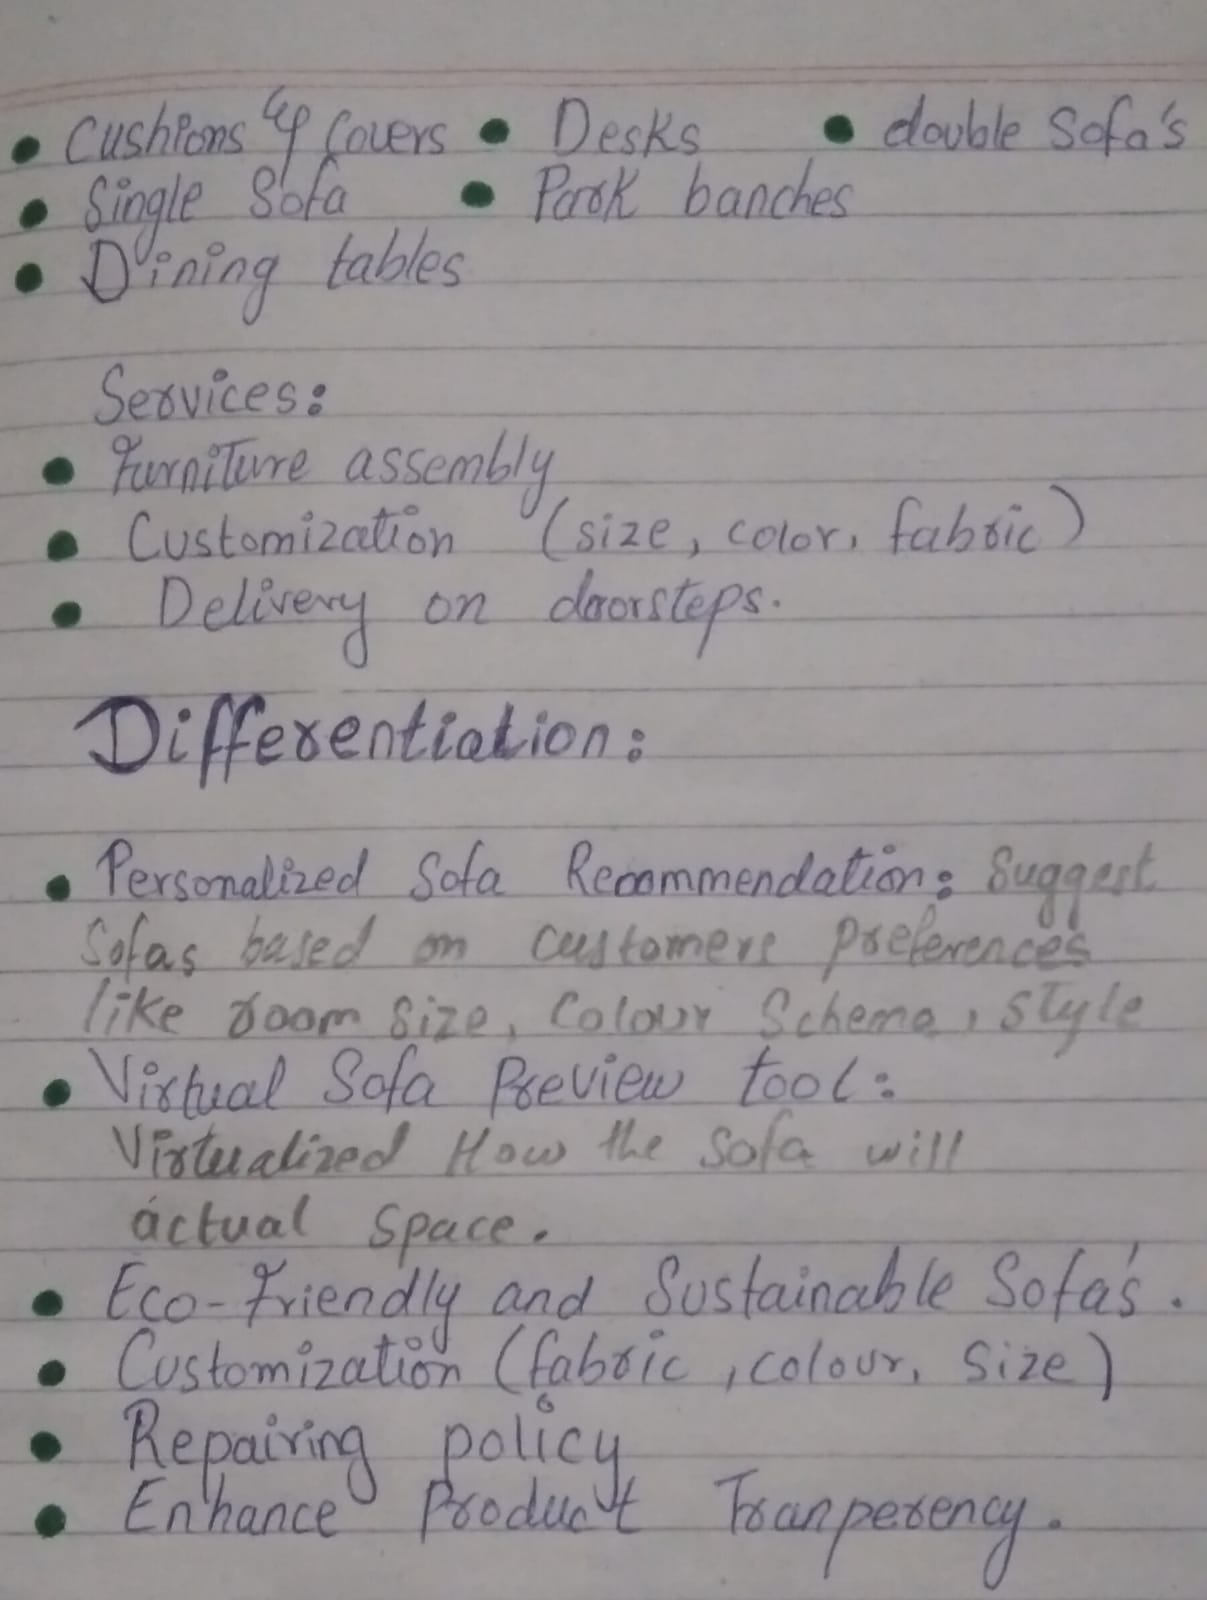 • Cushions & Covers • Desks • double Sofa's
• Single Sofa • Park banches
• Dining tables
Services:
• Furniture assembly
• Customization (size, color, fabric)
• Delivery on doorsteps.
Differentiation:
• Personalized Sofa Recommendation: Suggest
Sofas based on customers preferences
like room size, Colour Scheme, style
• Virtual Sofa Preview tool:
Virtualized How the sofa will
actual space.
• Eco-friendly and Sustainable Sofa's.
• Customization (fabric, colour, Size)
• Repairing policy
• Enhance Product Tranperency.